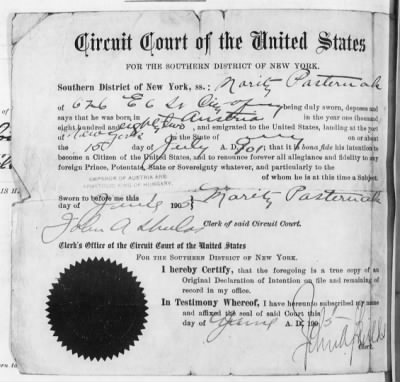 Circuit Court of the United States
FOR THE SOUTHERN DISTRICT OF NEW YORK.
Southern District of New York, ss.: Moritz Pasternak
of 626 E 6 St City of NY being duly sworn, deposes and
says that he was born in Austria in the year one thousand
eight hundred and eighty two, and emigrated to the United States, landing at the port
of New York in the State of NY on or about
the 15 day of July A. D. 1901, that it is bona fide his intention to
become a Citizen of the United States, and to renounce forever all allegiance and fidelity to any
foreign Prince, Potentate, State or Sovereignty whatever, and particularly to the
EMPEROR OF AUSTRIA AND
APOSTOLIC KING OF HUNGARY,
of whom he is at this time a Subject.
Sworn to before me this
day of June 1905 Moritz Pasternak
John A Shields Clerk of said Circuit Court.
Clerk's Office of the Circuit Court of the United States
FOR THE SOUTHERN DISTRICT OF NEW YORK.
I hereby Certify, that the foregoing is a true copy of an
Original Declaration of Intention on file and remaining of
record in my office.
In Testimony Whereof, I have hereunto subscribed my name
and affixed the seal of said Court this
day of June A. D. 1905
John A Shields
Clerk.